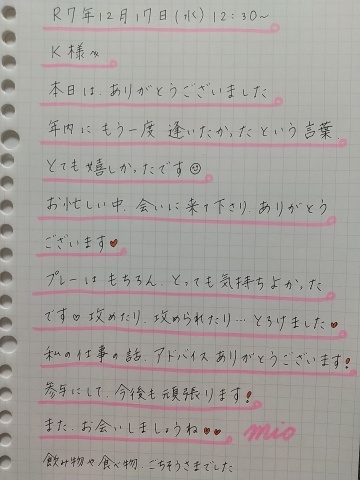 R7年12月17日(水) 12:30~
K様へ
本日は、ありがとうございました
年内に もう一度 逢いたかった という 言葉
とても 嬉しかったです☺
お忙しい中、会いに来て下さり、ありがとう
ございます♥
プレーは もちろん、とっても 気持ちよかった
です♡ 攻めたり、攻められたり… とろけました♥
私の仕事の話、アドバイス ありがとうございます!
参考にして、今後も頑張ります!
また、お会いしましょうね♥♥ mio
飲み物や食べ物、ごちそうさまでした